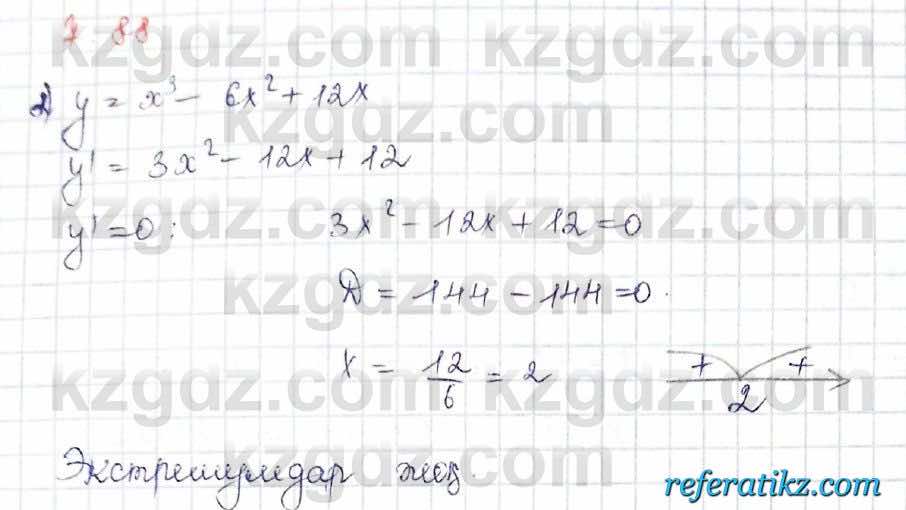 7 88
2) y = x³ - 6x² + 12x
y' = 3x² - 12x + 12
y' = 0; 3x² - 12x + 12 = 0
D = 144 - 144 = 0.
x = 12/6 = 2
+ +
2
Экстремумдар жоқ.
kzgdz.com kzgdz.com
kzgdz.com kzgdz.com
kzgdz.com kzgdz.com
kzgdz.com kzgdz.com
kzgdz.com kzgdz.com
referatikz.com